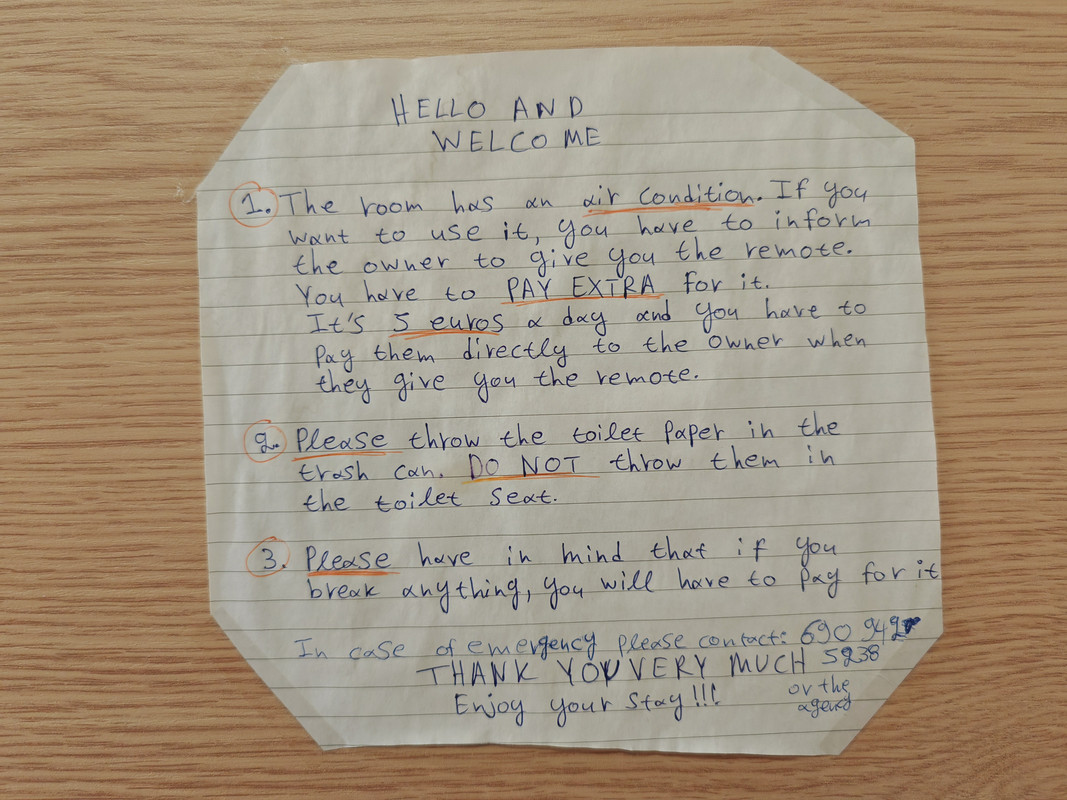 HELLO AND
WELCOME
1. The room has an air condition. If you
want to use it, you have to inform
the owner to give you the remote.
You have to PAY EXTRA for it.
It's 5 euros a day and you have to
pay them directly to the owner when
they give you the remote.
2. Please throw the toilet paper in the
trash can. DO NOT throw them in
the toilet seat.
3. Please have in mind that if you
break anything, you will have to pay for it
In case of emergency please contact: 690 942
5238
THANK YOU VERY MUCH
or the
Enjoy your stay!!!